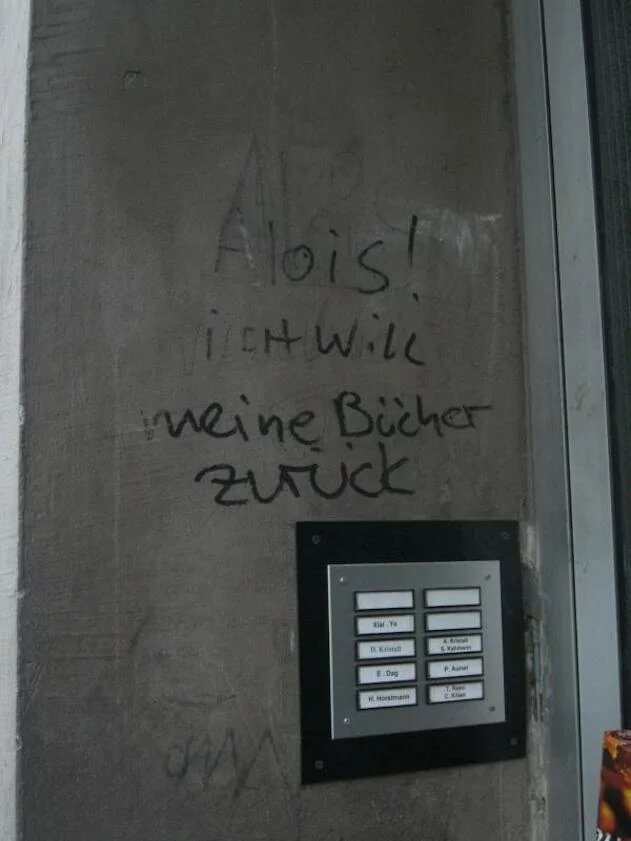 Alois!
ich will
meine Bücher
zurück
Xiai . Ye
D. Kristall
A. Kristall
S. Kallmann
E . Dag
P. Auner
H. Horstmann
C. Kilian